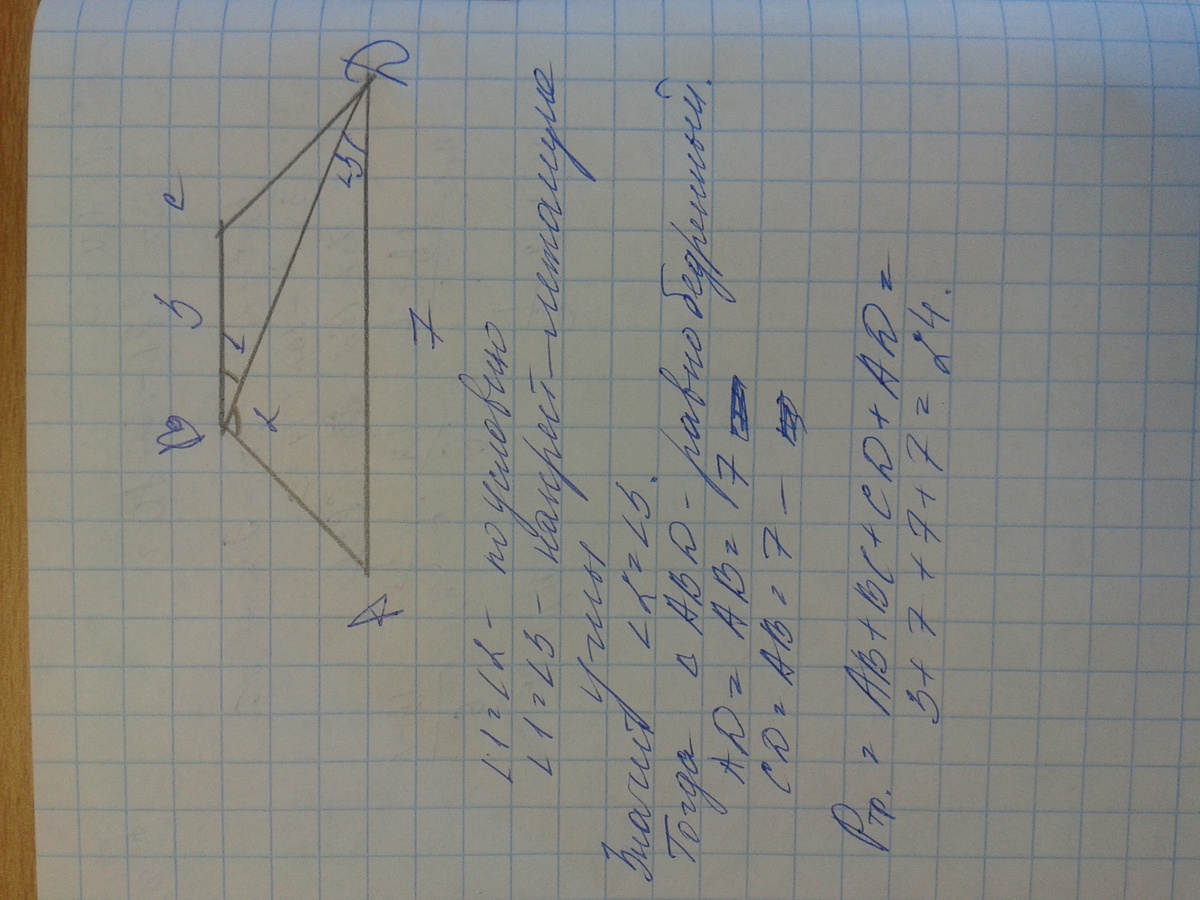 B 3 C
1
2
∠3
A 7 D
∠1 = ∠2 - по условию
∠1 = ∠3 - накрест-лежащие
углы
Значит ∠2 = ∠3.
Тогда △ ABD - равнобедренный.
AD = AB = 7
CD = AB = 7 -
Pтр. = AB + BC + CD + AD =
3 + 7 + 7 + 7 = 24.